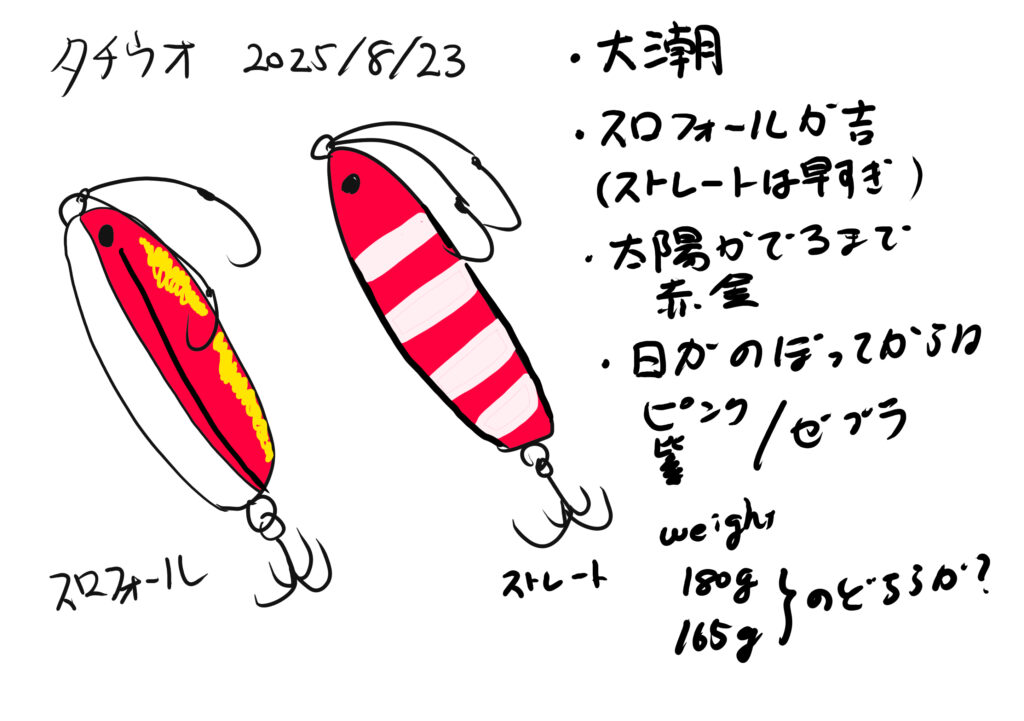 タチウオ 2025/8/23
・大潮
・スロフォールが吉
(ストレートは早すぎ)
・太陽がでるまで
赤金
・日がのぼってからは
ピンク
紫
/ゼブラ
weight
180g
165g
}のどちらか?
スロフォール
ストレート